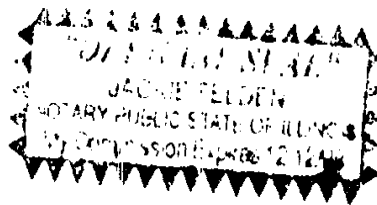 "OFFICIAL SEAL"
JACKIE FELDEN
NOTARY PUBLIC STATE OF ILLINOIS
My Commission Expires 12